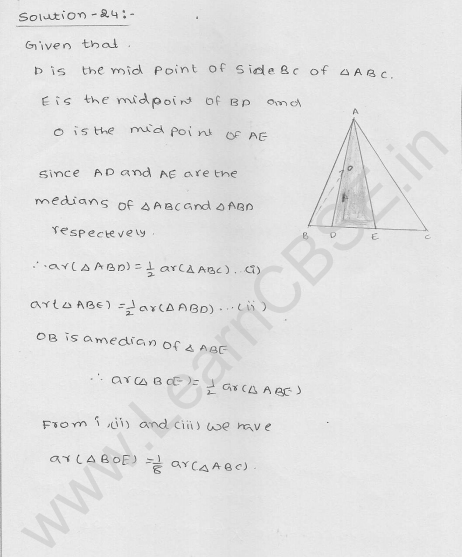 Solution-24:-
Given that.
D is the mid point of side BC of △ABC.
E is the midpoint of BD and
O is the mid point of AE
A
O
B D E C
Since AD and AE are the
medians of △ABC and △ABD
respectevely.
∴ ar(△ABD)=1/2 ar(△ABC)..(i)
ar(△ABE)=1/2 ar(△ABD)...(ii)
OB is a median of △ABE
∴ ar(△BOE)=1/2 ar(△ABE)
From i,(ii) and (iii) we have
ar(△BOE)=1/8 ar(△ABC).
www.LearnCBSE.in